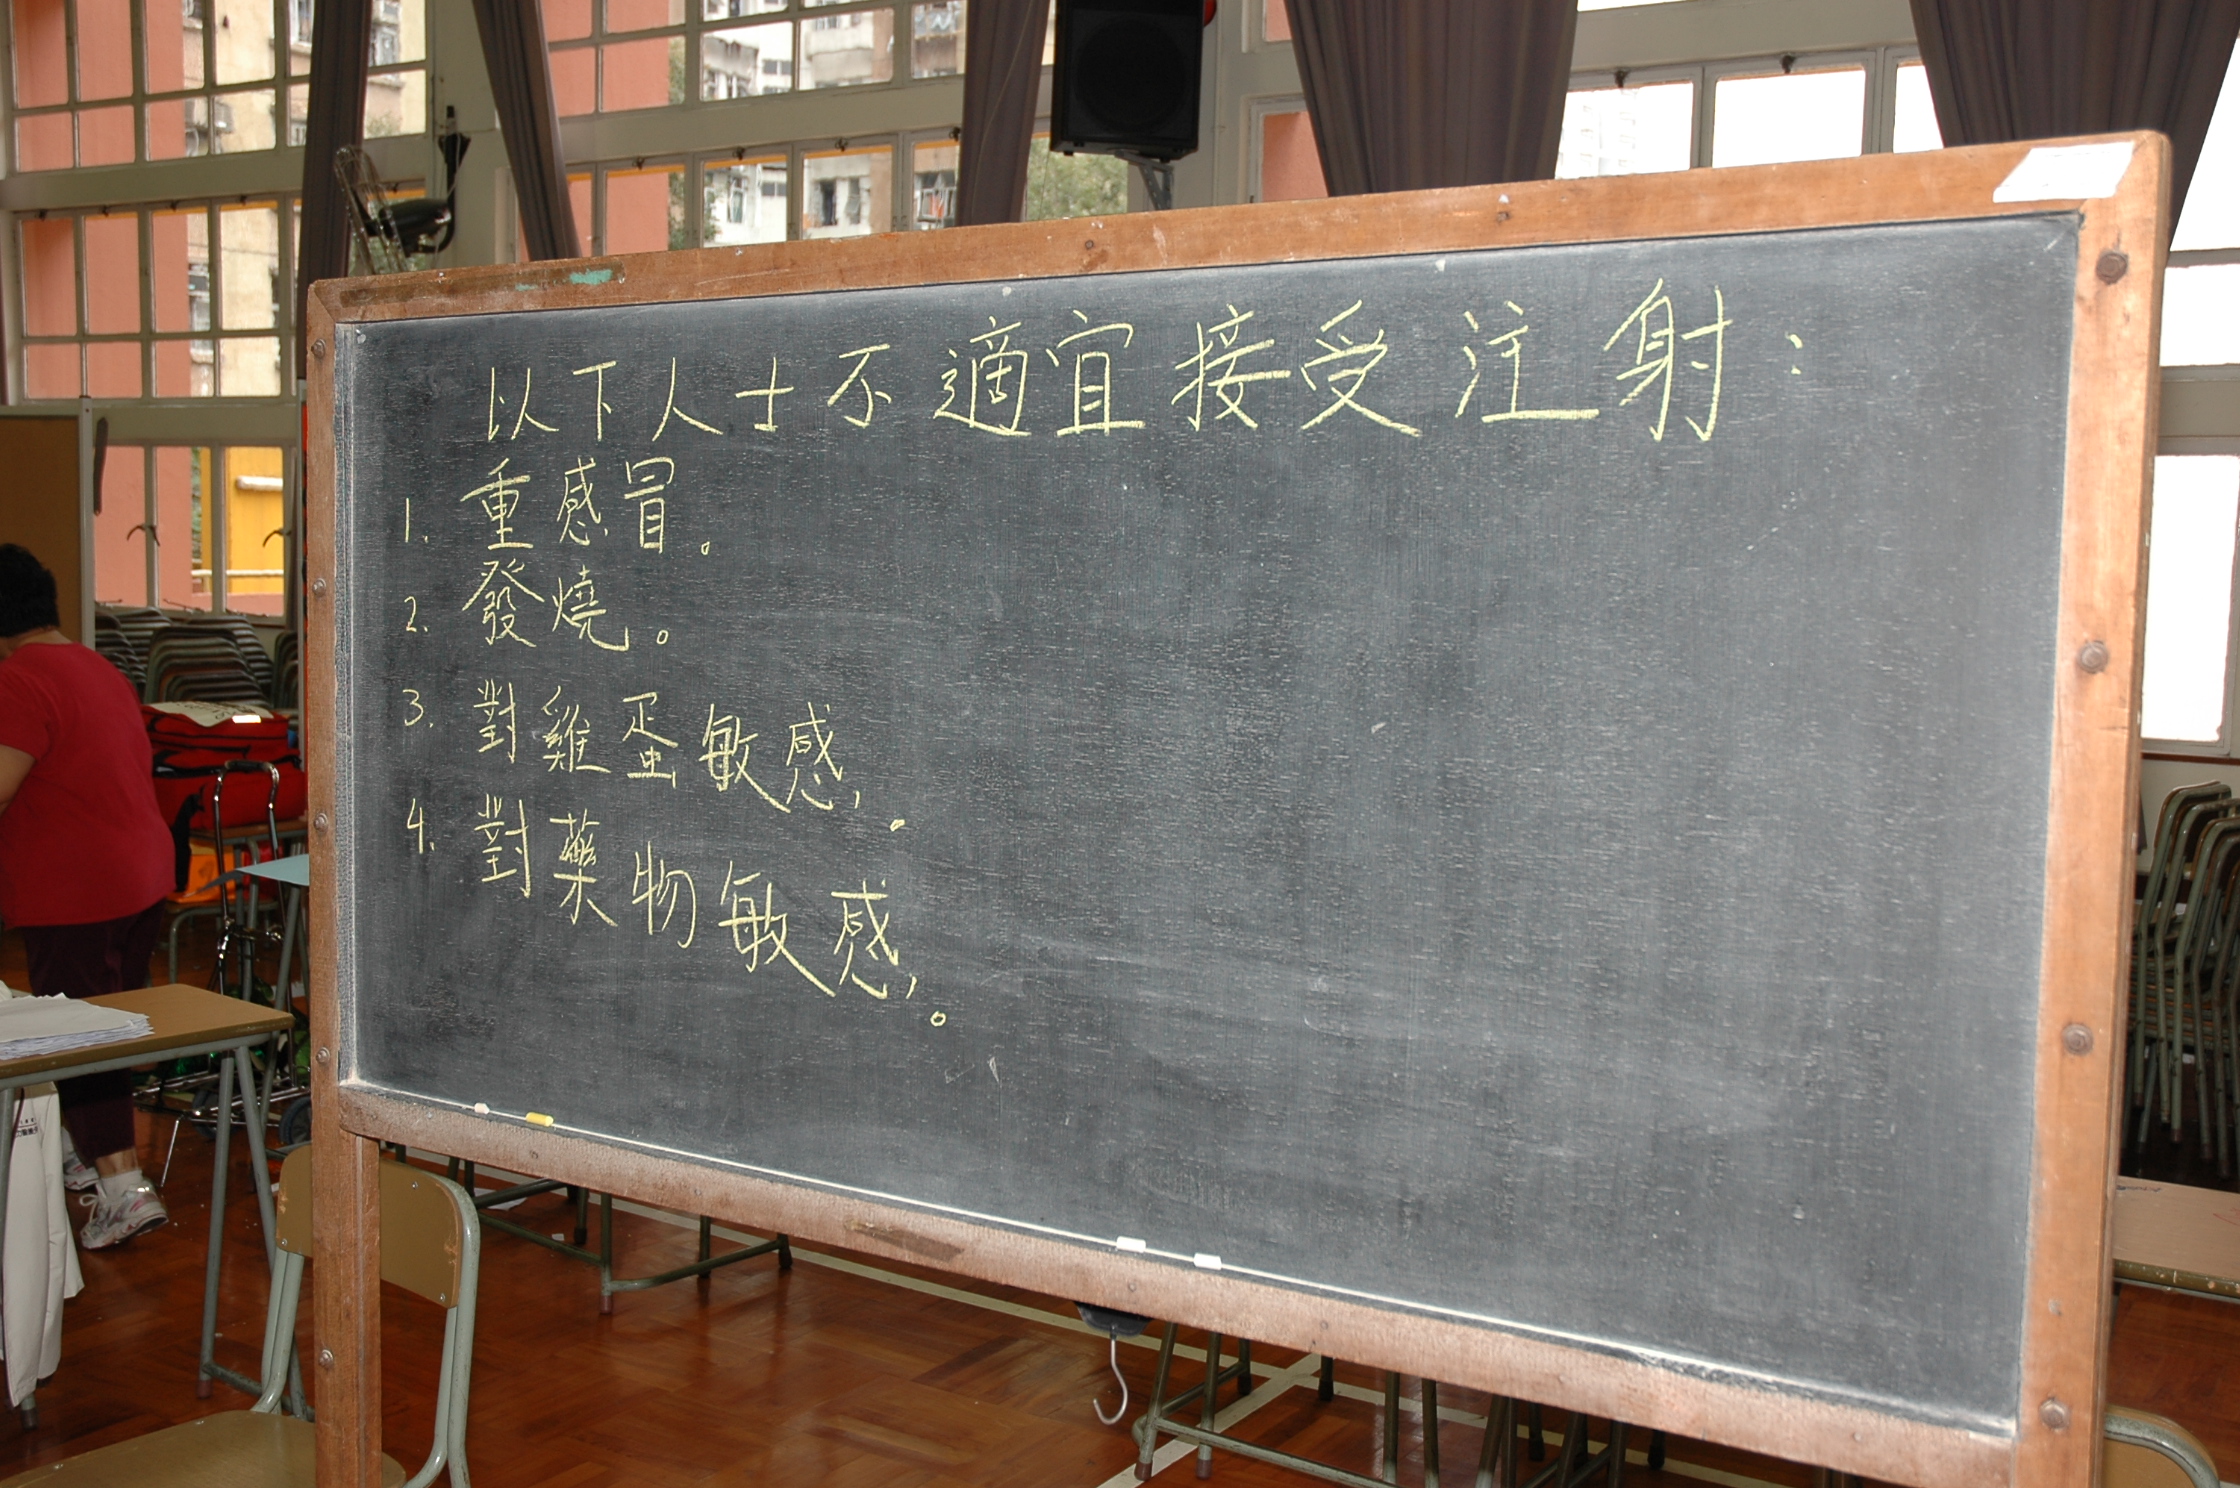 以下人士不適宜接受注射：
1. 重感冒。
2. 發燒。
3. 對雞蛋敏感，。
4. 對藥物敏感，。